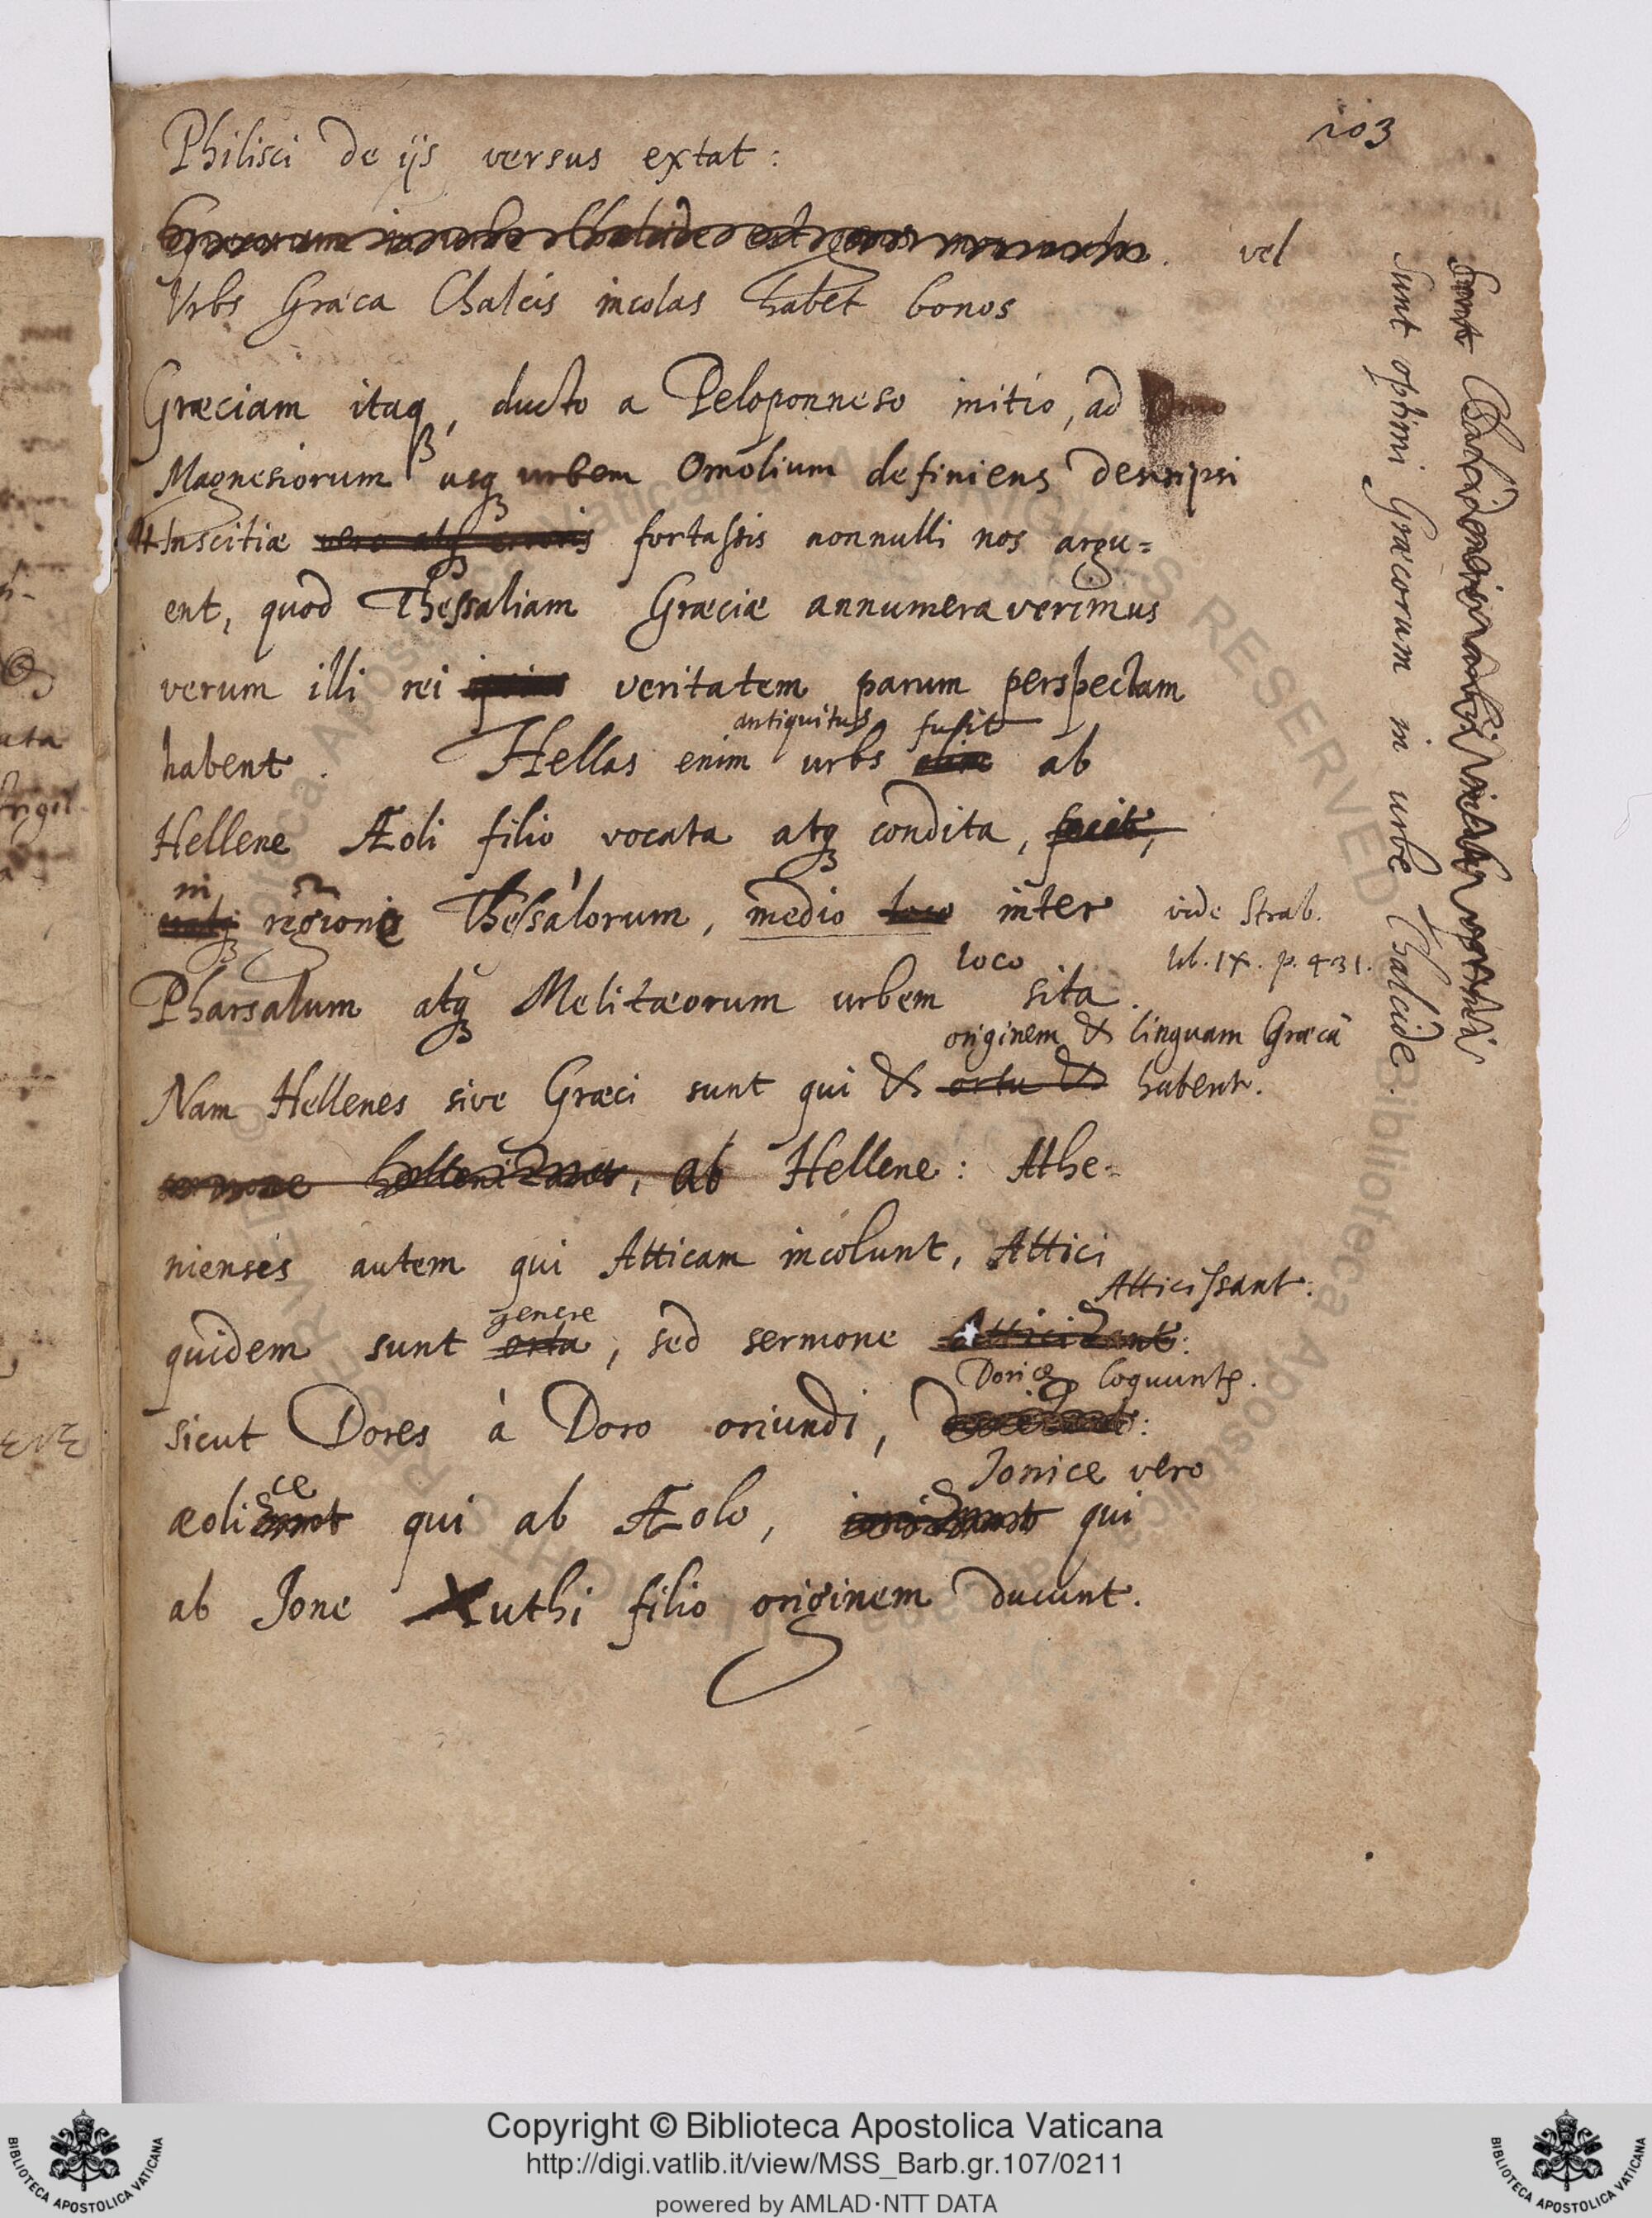 103
Philisci de ijs versus extat:
vel
Urbs Græca Chalcis incolas habet bonos
Græciam itaq, ducto a Peloponneso initio, ad
Magnesiorum usq urbem Omolium definiens descripsi
Inscitiæ vero atq erroris fortassis nonnulli nos argu=
ent, quod Thessaliam Græciæ annumeraverimus
verum illi rei veritatem parum perspectam
antiquitus fuit
habent. Hellas enim urbs olim ab
Hellene Æoli filio vocata atq condita,
in
regione Thessalorum, medio loco inter
vide Strab.
lib. IX. p. 431.
loco
Pharsalum atq Melitæorum urbem sita.
originem & linguam Græcā
Nam Hellenes sive Græci sunt qui & ortu & habent.
sermone hellenizant, ab Hellene: Athe=
nienses autem qui Atticam incolunt, Attici
Atticissant:
genere
quidem sunt orta, sed sermone Atticizant:
Dorice loquunt.
sicut Dores à Doro oriundi,
Jonice vero
ce
æolizant qui ab Æolo, ionizant qui
ab Jone Xuthi filio originem ducunt.
sunt optimi Græcorum in urbe Chalcide.
Copyright © Biblioteca Apostolica Vaticana
http://digi.vatlib.it/view/MSS_Barb.gr.107/0211
powered by AMLAD·NTT DATA
BIBLIOTECA APOSTOLICA VATICANA
BIBLIOTECA APOSTOLICA VATICANA